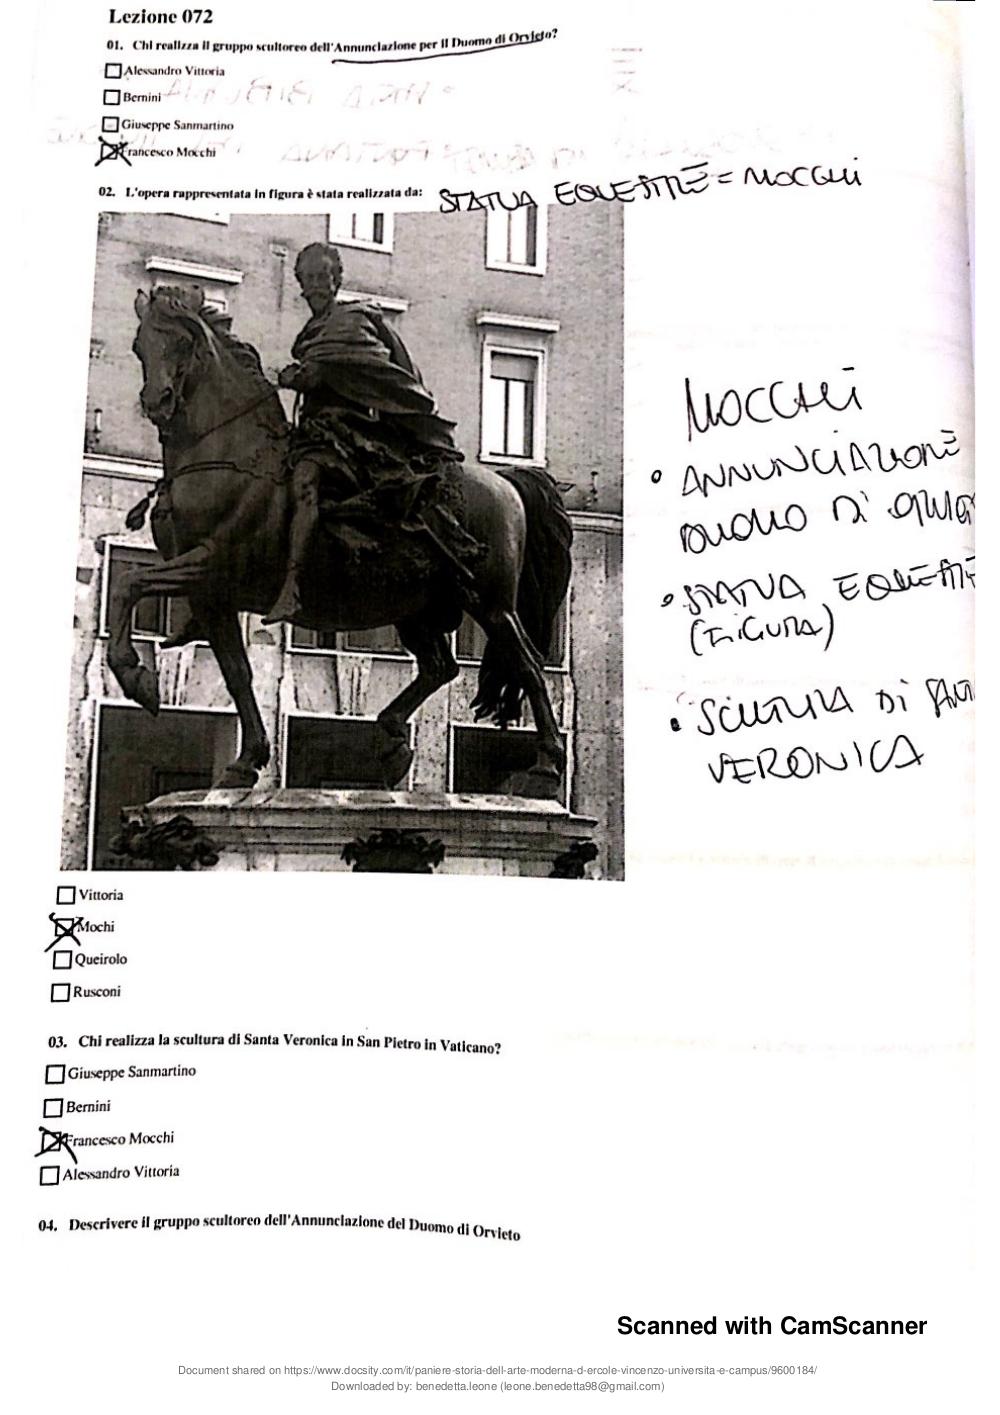 Lezione 072
01. Chi realizza il gruppo scultoreo dell'Annunciazione per il Duomo di Orvieto?
Alessandro Vittoria
Bernini
Giuseppe Sanmartino
Francesco Mocchi
02. L'opera rappresentata in figura è stata realizzata da:
STATUA EQUESTRE = MOCCHI
MOCCHI
• ANNUNCIAZIONE
DUOMO DI
• STATUA
(FIGURA)
• SCULTURA DI
VERONICA
Vittoria
Mochi
Queirolo
Rusconi
03. Chi realizza la scultura di Santa Veronica in San Pietro in Vaticano?
Giuseppe Sanmartino
Bernini
Francesco Mocchi
Alessandro Vittoria
04. Descrivere il gruppo scultoreo dell'Annunciazione del Duomo di Orvieto
Scanned with CamScanner
Document shared on https://www.docsity.com/it/paniere-storia-dell-arte-moderna-d-ercole-vincenzo-universita-e-campus/9600184/
Downloaded by: benedetta.leone (leone.benedetta98@gmail.com)